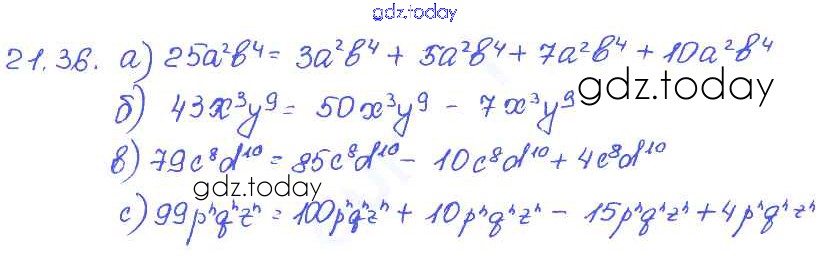 gdz.today
21.36. а) 25a²b⁴ = 3a²b⁴ + 5a²b⁴ + 7a²b⁴ + 10a²b⁴
gdz.today
б) 43x³y⁹ = 50x³y⁹ - 7x³y⁹
в) 79c⁸d¹⁰ = 85c⁸d¹⁰ - 10c⁸d¹⁰ + 4c⁸d¹⁰
gdz.today
с) 99pⁿqⁿzⁿ = 100pⁿqⁿzⁿ + 10pⁿqⁿzⁿ - 15pⁿqⁿzⁿ + 4pⁿqⁿzⁿ